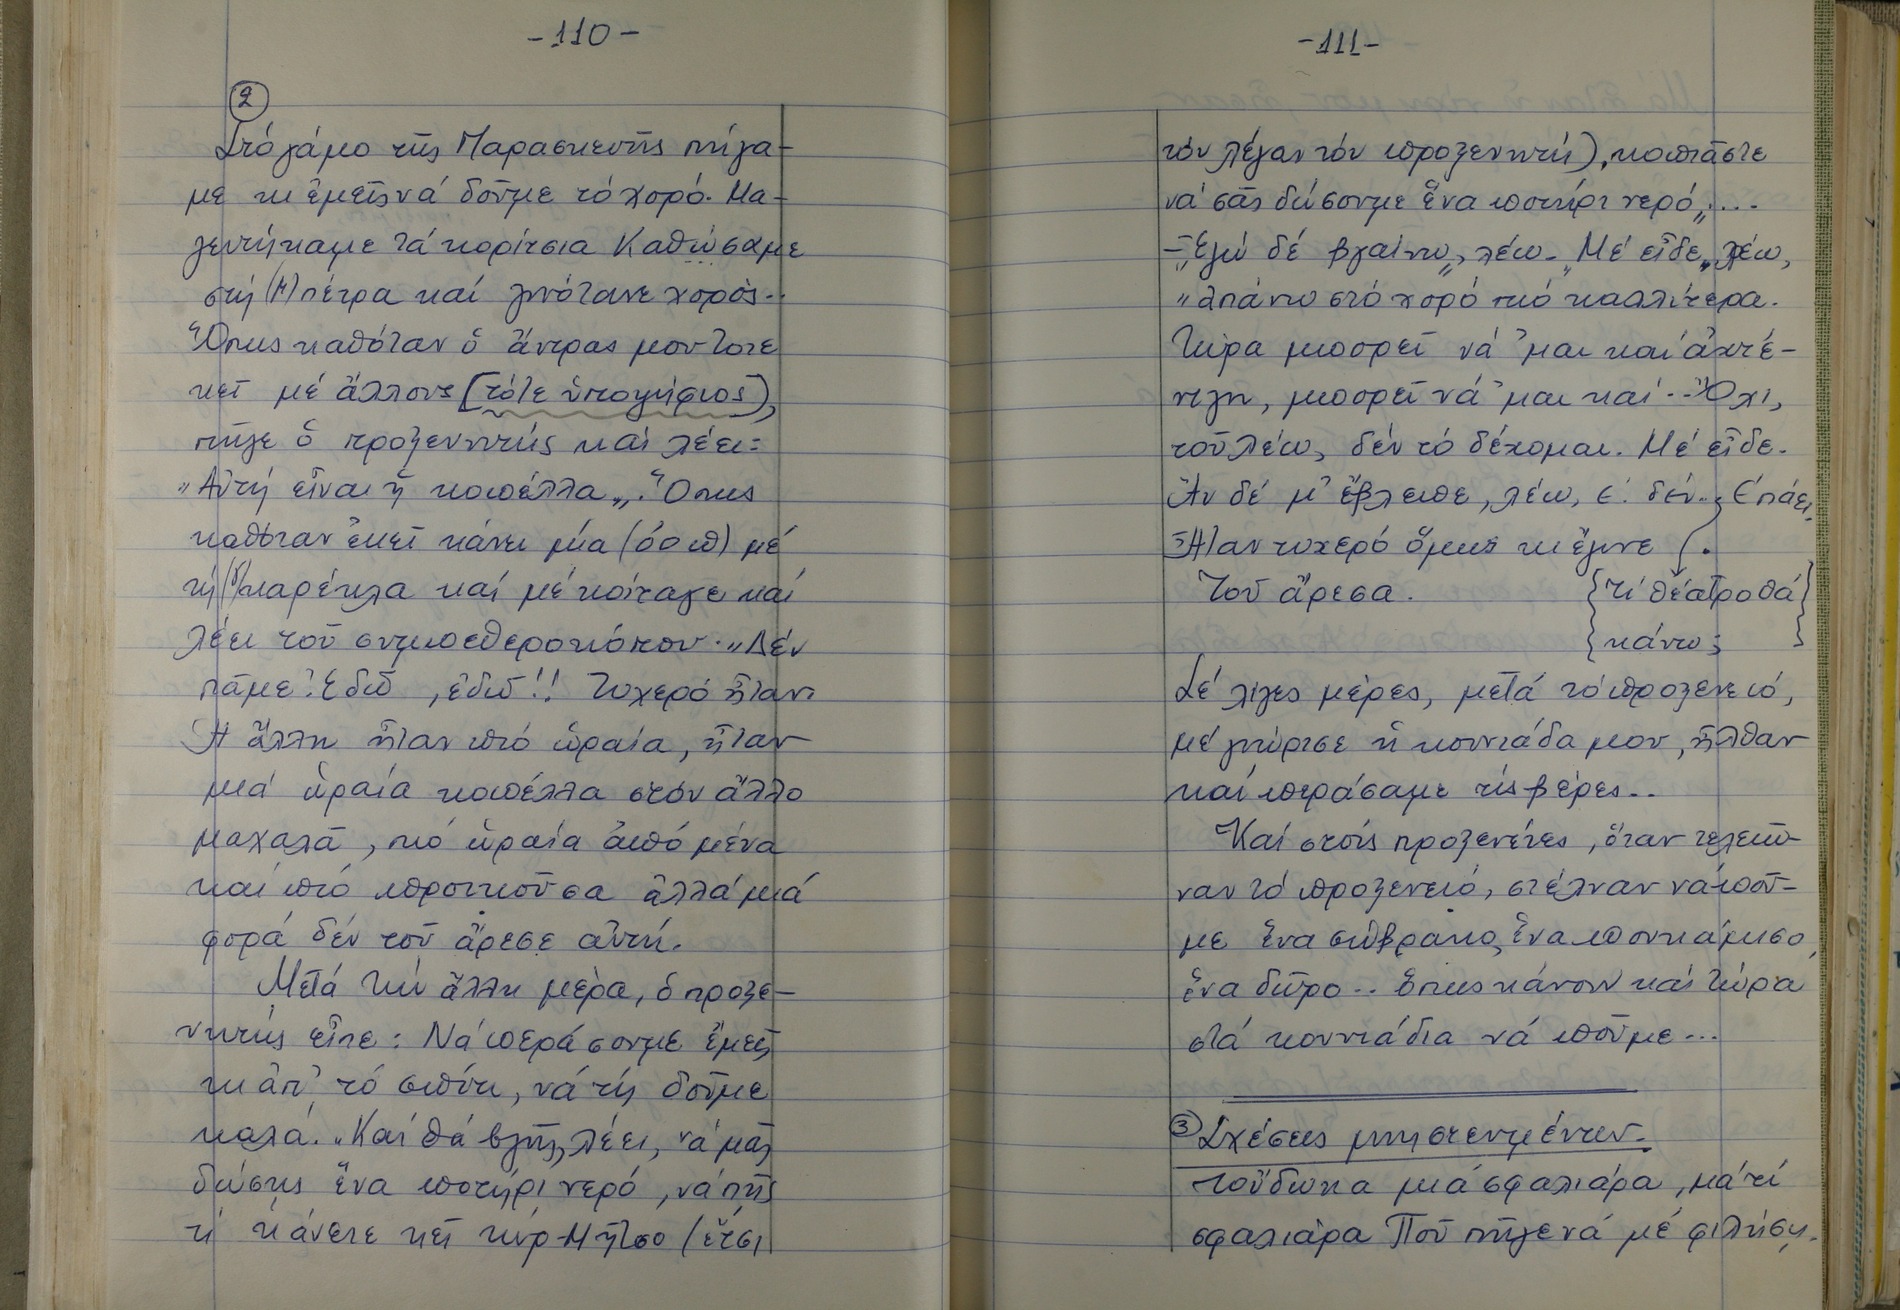 -110-
②
Στό γάμο τῆς Παρασκευῆς πήγα-
με κι ἐμεῖς νά δοῦμε τό χορό. Μα-
ζευτήκαμε τά κορίτσια Καθώσαμε
στή (μ)πέτρα καί γινότανε χορός..
Ὅπως καθόταν ὁ ἄντρας μου τότε
κεῖ μέ ἄλλους (τότε ὑποψήφιος),
πῆγε ὁ προξενητής καί λέει:
"Αὐτή εἶναι ἡ κοπέλλα". Ὅπως
καθόταν ἐκεῖ κάνει μία (όοπ) μέ
τή (γ)καρέκλα καί μέ κοίταγε καί
λέει τοῦ συμπεθεροκόπου. "Δέν
πᾶμε! Ἐδῶ, ἐδῶ!! Τυχερό ἦταν
Ἡ ἄλλη ἦταν πιό ὡραία, ἦταν
μιά ὡραία κοπέλλα στόν ἄλλο
μαχαλᾶ, πιό ὡραία ἀπό μένα
καί πιό προικοῦσα ἀλλά μιά
φορά δέν τοῦ ἄρεσε αὐτή.
Μετά τήν ἄλλη μέρα, ὁ προξε-
νητής εἶπε: Νά περάσουμε ἐμεῖς
κι ἀπ' τό σπίτι, νά τή δοῦμε
καλά. "Καί θά βγῆς, λέει, νά μᾶς
δώσης ἕνα ποτήρι νερό, νά πῆς
τί κάνετε κεῖ κύρ-Μῆτσο (ἔτσι
-111-
τόν λέγαν τόν προξενητή), κοπιᾶστε
νά σᾶς δώσουμε ἕνα ποτήρι νερό"....
-"Ἐγώ δέ βγαίνω", λέω. "Μέ εἶδε", λέω,
"ἀπάνω στό χορό πιό καλλίτερα.
Τώρα μπορεῖ νά 'μαι καί ἀχτέ-
νιγη, μπορεῖ νά 'μαι καί .. Ὄχι,
τοῦ λέω, δέν τό δέχομαι. Μέ εἶδε.
Ἄν δέ μ' ἔβλεπε, λέω, ἐ! δέν..; Ἐπάει.
Ἦταν τυχερό ὅμως κι ἔγινε.
Τοῦ ἄρεσα. {τί θέατρο θά}
{κάνω;}
Σέ λίγες μέρες, μετά τό προξενειό,
μέ γνώρισε ἡ κουνιάδα μου, ἦλθαν
καί περάσαμε τίς βέρες..
Καί στούς προξενῆτες, ὅταν τελειώ-
ναν τό προξενειό, στέλναν νά ποῦ-
με ἕνα σώβρακο, ἕνα πουκάμισο,
ἕνα δῶρο.. ὅπως κάνουν καί τώρα
στά κουνιάδια νά ποῦμε...
③ Σχέσεις μνηστευμένων.
Τοὔδωκα μιά σφαλιάρα, μά τί
σφαλιάρα Πού πῆγε νά μέ φιλήση.